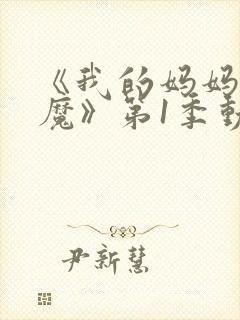 《我的妈妈
魔》第1季動
尹新慧